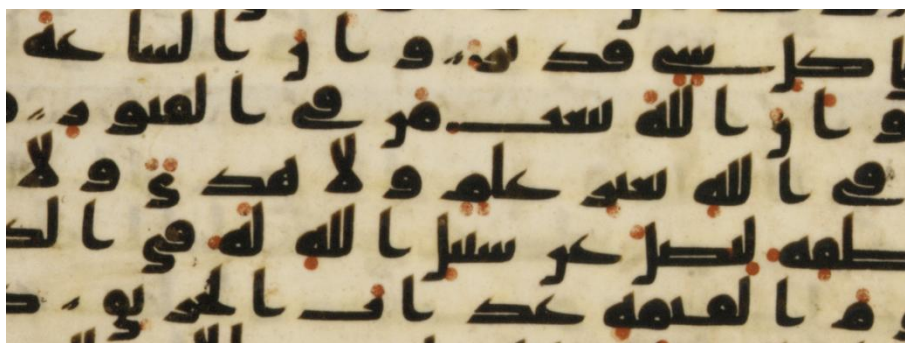 كل شى قدير و ان الساعه
و ان الله يبعث من فى القبور و
فى الله بغير علم و لا هدى و لا
عطفه ليضل عن سبيل الله له فى الد
م القيمه عذاب الحريق ذ